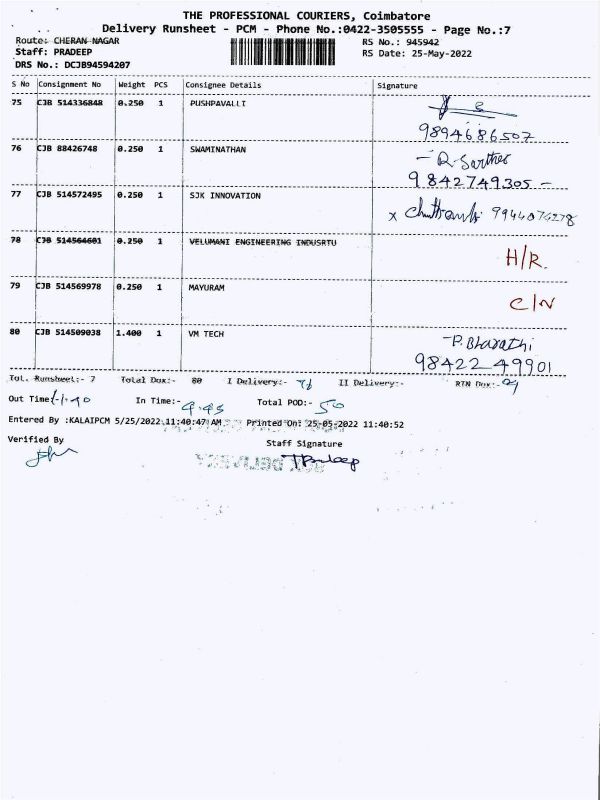 THE PROFESSIONAL COURIERS, Coimbatore
Delivery Runsheet - PCM - Phone No.:0422-3505555 - Page No.:7
Route: CHERAN NAGAR RS No.: 945942
Staff: PRADEEP RS Date: 25-May-2022
DRS No.: DCJB94594207
S No Consignment No Weight PCS Consignee Details Signature
75 CJB 514336848 0.250 1 PUSHPAVALLI
9894686507
76 CJB 88426748 0.250 1 SWAMINATHAN
9842749305 -
77 CJB 514572495 0.250 1 SJK INNOVATION
78 CJB 514564601 0.250 1 VELUMANI ENGINEERING INDUSRTU
H/R.
79 CJB 514569978 0.250 1 MAYURAM
C/N
80 CJB 514509038 1.400 1 VM TECH
- P. Bharathi
98422 49901
Tot. Runsheet:- 7 Total Dox:- 80 I Delivery:- II Delivery:- RTN Dox:-
Out Time In Time:- 4.45 Total POD:- 50
Entered By :KALAIPCM 5/25/2022 11:40:47 AM Printed On: 25-05-2022 11:40:52
Verified By Staff Signature